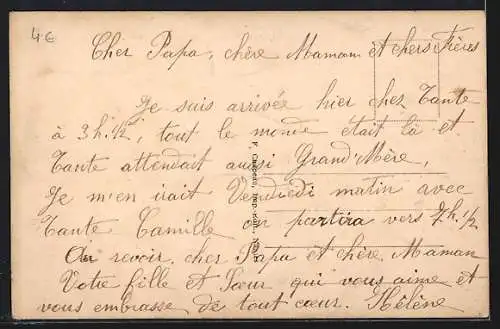 4€
Cher Papa, chère Maman et chers Frères
Je suis arrivée hier chez Tante
à 3h.1/2, tout le monde était là et
Tante attendait aussi Grand'Mère,
Je m'en irait Vendredi matin avec
Tante Camille on partira vers 7h.1/2
Au revoir cher Papa et chère Maman
Votre fille et Sœur qui vous aime et
vous embrasse de tout cœur. Hélène